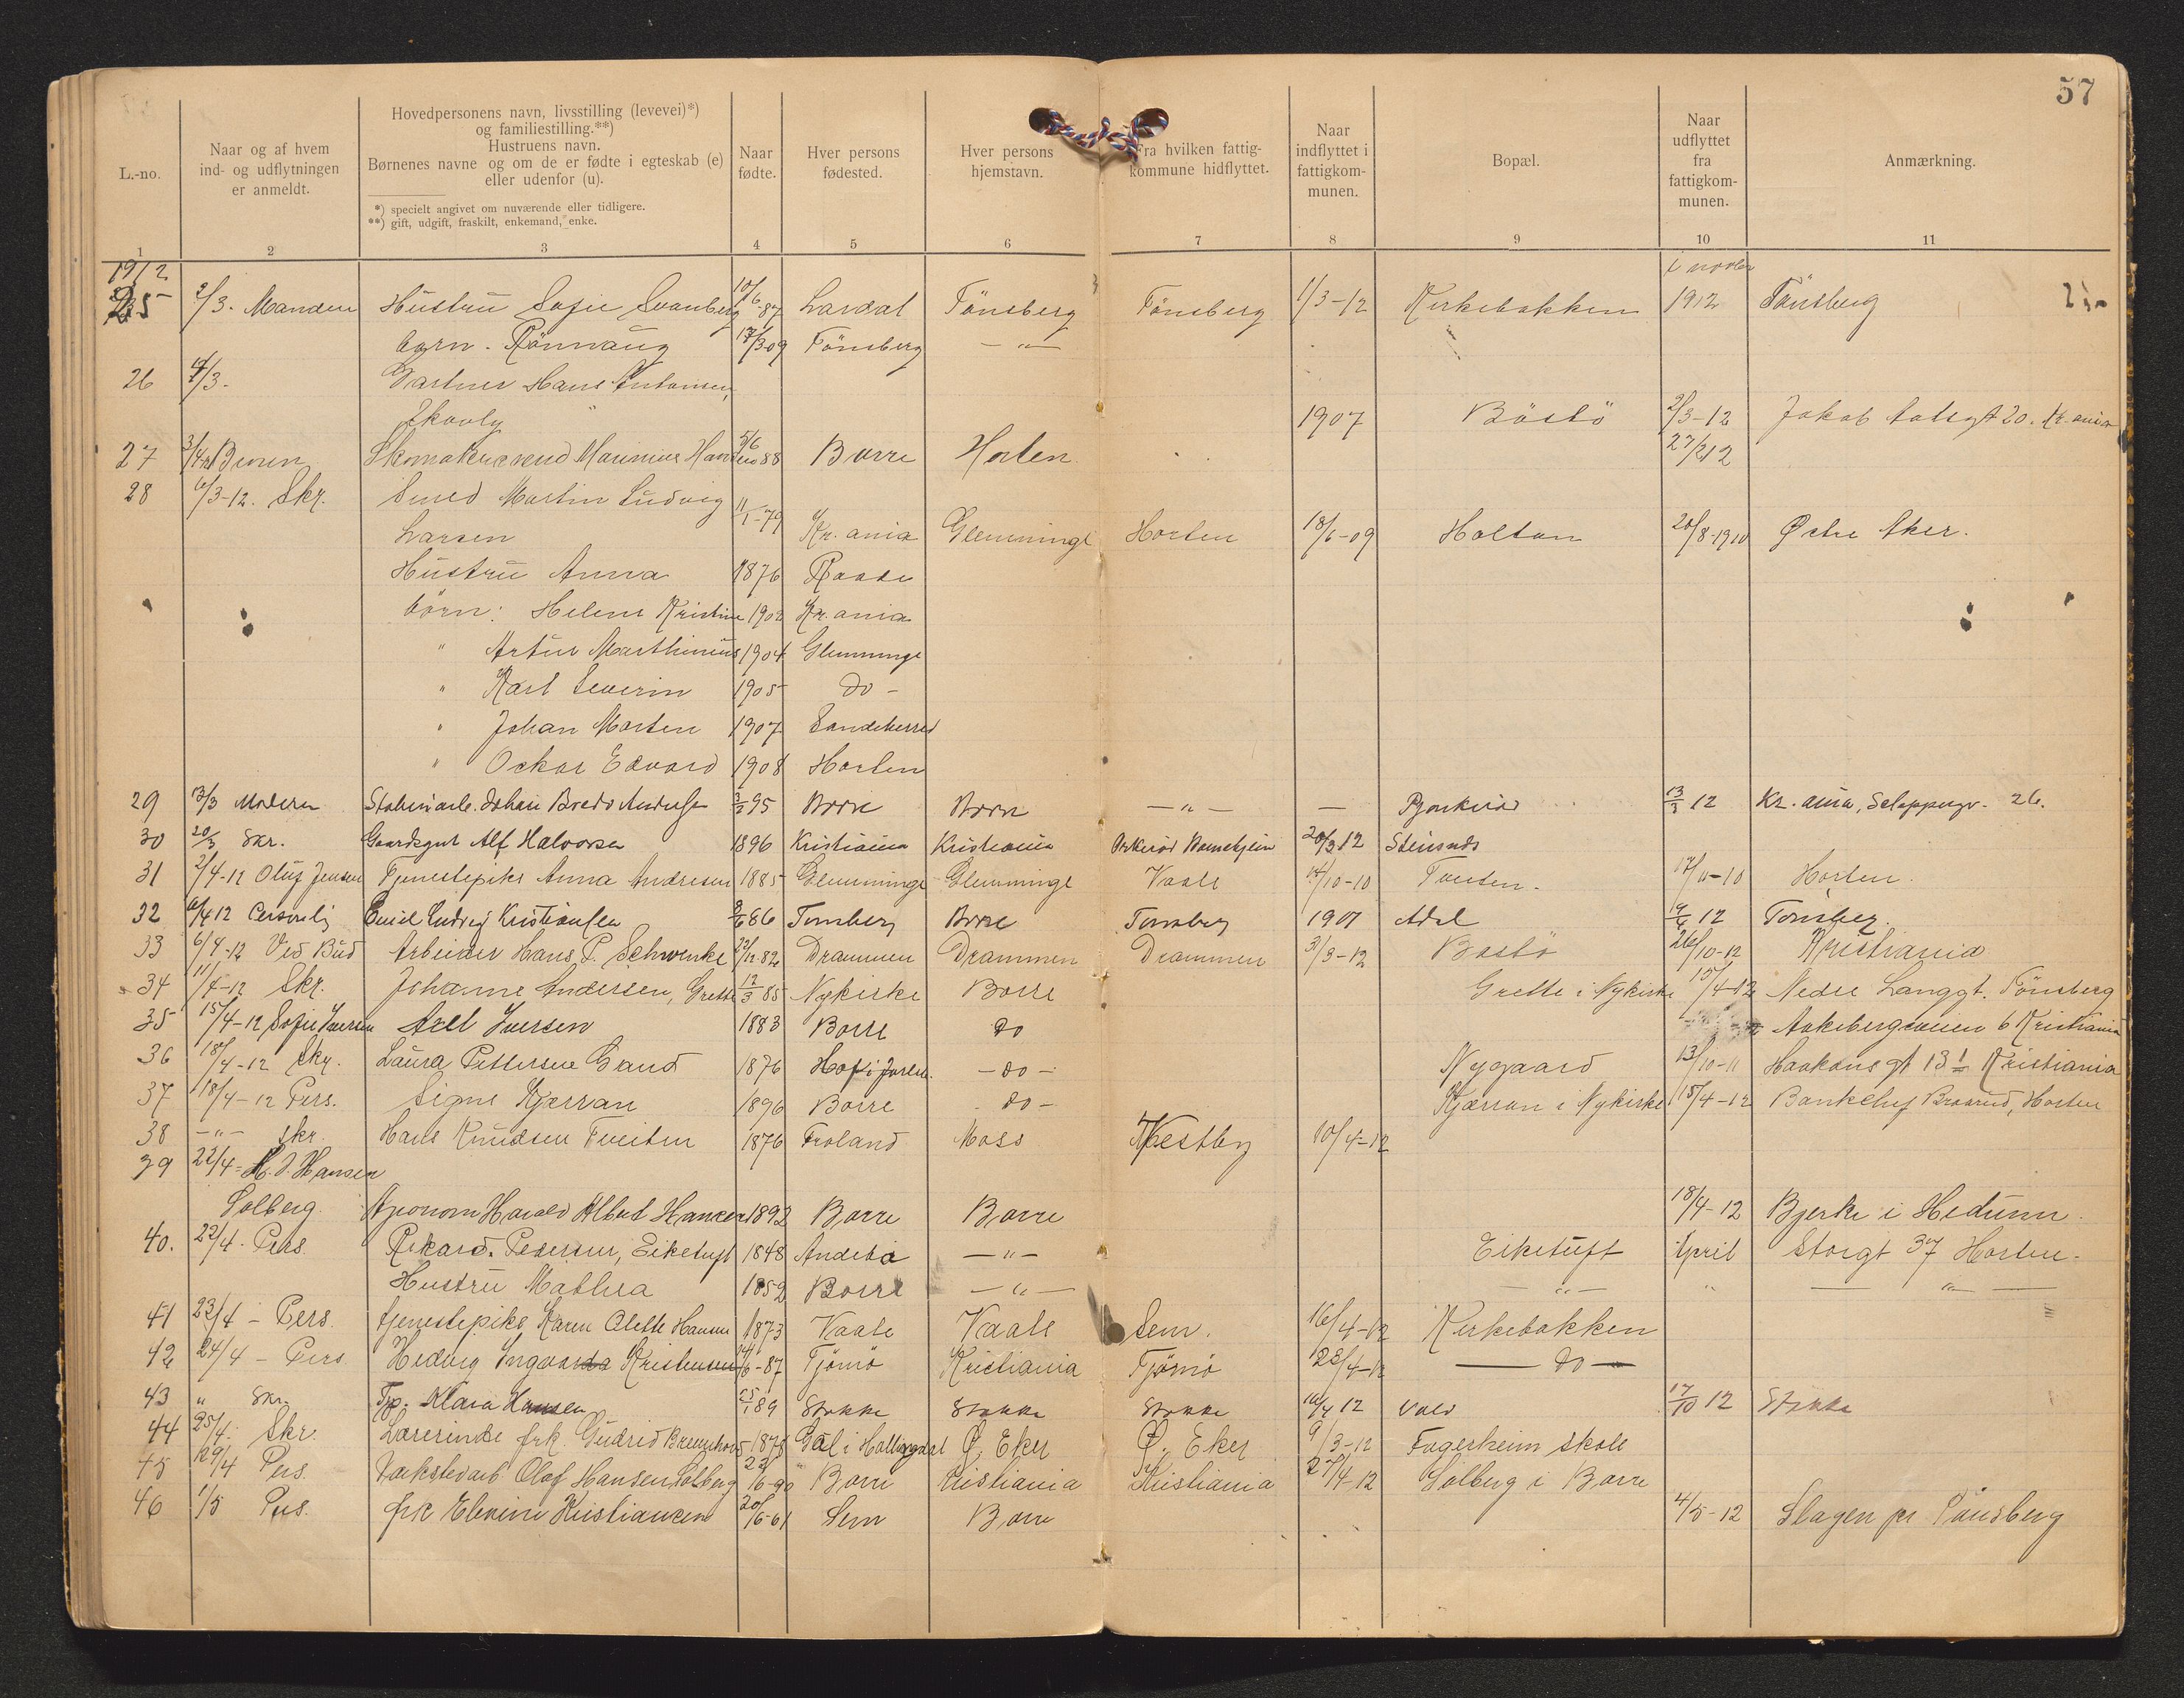 57
L.-no.
Naar og af hvem
ind- og udflytningen
er anmeldt.
Hovedpersonens navn, livsstilling (levevei)*)
og familiestilling.**)
Hustruens navn.
Børnenes navne og om de er fødte i egteskab (e)
eller udenfor (u).
*) specielt angivet om nuværende eller tidligere.
**) gift, udgift, fraskilt, enkemand, enke.
Naar
fødte.
Hver persons
fødested.
Hver persons
hjemstavn.
Fra hvilken fattig-
kommune hidflyttet.
Naar
indflyttet i
fattigkom-
munen.
Bopæl.
Naar
udflyttet
fra
fattigkom-
munen.
Anmærkning.
1 2 3 4 5 6 7 8 9 10 11
1912
25 2/3. Manden Hustru Sofie Svanberg 10/6-87 Lardal Tönsberg Tönsberg 1/3-12 Kirkebakken 1912 Tönsberg
barn. Rönnaug 17/3 09 Tönsberg - " -
26 4/3. Gartner Hans Antonsen,
Skovly 1907 Bastö 2/3-12 Jakob Aalsgt 20. Kr.ania
27 Skomakersvend Marinius Hansen 5/6 88 Borre Horten 27/2 12
28 6/3-12. Skr. Smed Martin Ludvig 11/1-79
Larsen Kr.ania Glemminge Horten 18/6-09 Holtan 20/8-1910 Østre Aker.
Hustru Anna 1876 Raade
börn: Helene Kristine 1902 Kr.ania
" Artur Marthinius 1904 Glemminge
" Karl Severin 1905 do -
" Johan Morten 1907 Sandeherred
" Oskar Edvard 1908 Horten
29 13/3 Moderen Johan Bredo 95 Borre Borre - " - - 13/3 12 Kr.ania, 26.
30 20/3 Skr. Gaardsgut Alf Halvorsen 1896 Kristiania Kristiania 20/3 12 Steinsnes
31 2/4-12 Oluf Jensen Tjenestepike Anna Andresen 1885 Glemminge Glemminge Vaale 14/10-10 Tveten. 17/11-10 Horten.
32 6/4 12 Personlig Emil Ludvig Kristiansen 86 Tönsberg Borre Tönsberg 1907 Adal 12 Tönsberg.
33 6/4-12 Ved Bud Arbeider Hans P. Schwenke 22/12-82 Drammen Drammen Drammen 31/3-12 Bastö 26/10-12 Kristiania
34 11/4-12 Skr. Johanne Andersen, Grette 12/3 85 Nykirke Borre Grette i Nykirke 15/4-12 Nedre Langgt. Tönsberg
35 15/4-12 Sofie Iversen Axel Iversen 1883 Borre do Aakebergveien 6 Kristiania
36 18/4-12 Skr. Laura Pettersen Grand 1876 Hof i Jarlsb. - do - Nygaard 13/10-11 Haakons gt 13 I Kristiania
37 18/4-12 Pers. Signe Kjærran 1896 Borre - do - Kjærran i Nykirke 15/4-12 Bankchef Braarud, Horten
38 - " - Skr. Hans Knudsen Tveiten 1876 Froland Moss Vestby 10/4-12
39 22/4= H. J. Hansen
Solberg Agronom Harald Albert Hansen 1892 Borre Borre 18/4-12 Bjerke i Hedrum
40. 22/4. Pers. Rikard Pedersen, Eiketuft 1848 Andebö - " - Eiketuft April Storgt 37 Horten.
Hustru Mathea 1852 Borre - " - - " - " - " -
41 23/4 - Pers. tjenestepike Karen Olette Hansen 1873 Vaale Vaale Sem. 16/4-12 Kirkebakken
42 24/4 - Pers. Hedvig Ingvarda Kristensen 14/6-87 Tjömö Kristiania Tjömö 23/4-12 - do -
43 " Skr. Tjp. Klara Hansen 25/1 89 Stokke Stokke Stokke 12 Vold 17/10 12 Stokke
44 25/4. Skr. Lærerinde frk. Gudrid 1878 Gol i Hallingdal Ø. Eker Ø. Eker 9/3-12 Fagerheim skole
45 29/4 Pers. Olaf Hansen Solberg 22/6-90 Borre Kristiania Kristiania 27/4-12 Solberg i Borre
46 1/5 Pers. frk Elevine Kristiansen 20/6-61 Sem Borre 4/5-12 Slagen pr Tönsberg